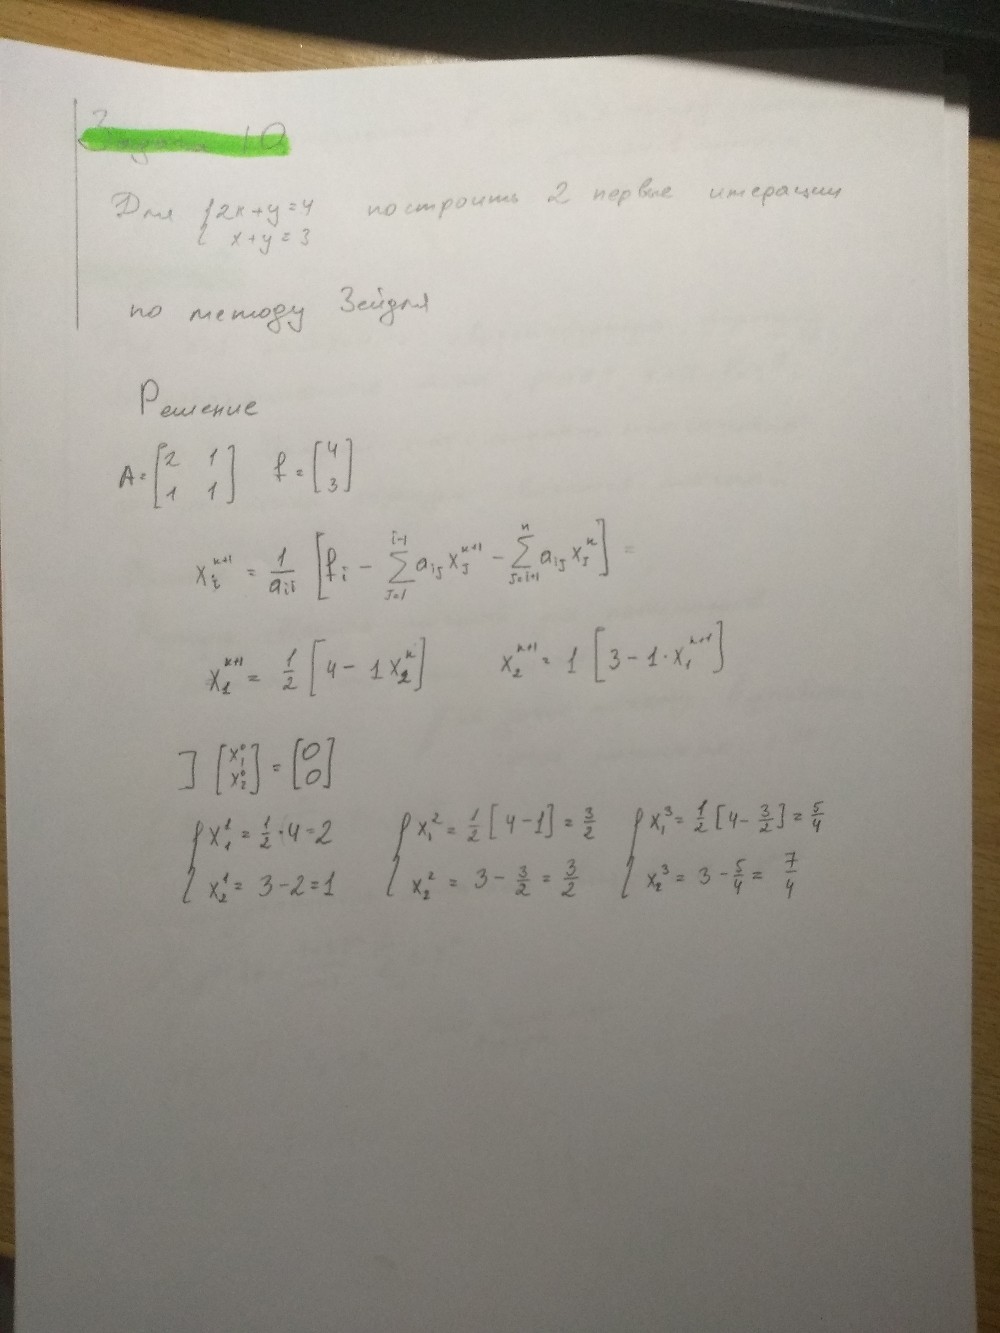 Задача 10
Для {2x+y=4 построить 2 первые итерации
x+y=3
по методу Зейделя
Решение
A=[2 1; 1 1] f=[4; 3]
xᵢᵏ⁺¹ = 1/aᵢᵢ [fᵢ − ∑ⱼ₌₁ⁱ⁻¹ aᵢⱼ xⱼᵏ⁺¹ − ∑ⱼ₌ᵢ₊₁ⁿ aᵢⱼ xⱼᵏ] =
x₁ᵏ⁺¹ = 1/2 [4 − 1x₂ᵏ] x₂ᵏ⁺¹ = 1 [3 − 1·x₁ᵏ⁺¹]
] [x₁⁰; x₂⁰] = [0; 0]
{x₁¹ = 1/2·4=2 {x₁² = 1/2 [4−1] = 3/2 {x₁³ = 1/2 [4− 3/2] = 5/4
x₂¹ = 3−2=1 x₂² = 3 − 3/2 = 3/2 x₂³ = 3 − 5/4 = 7/4